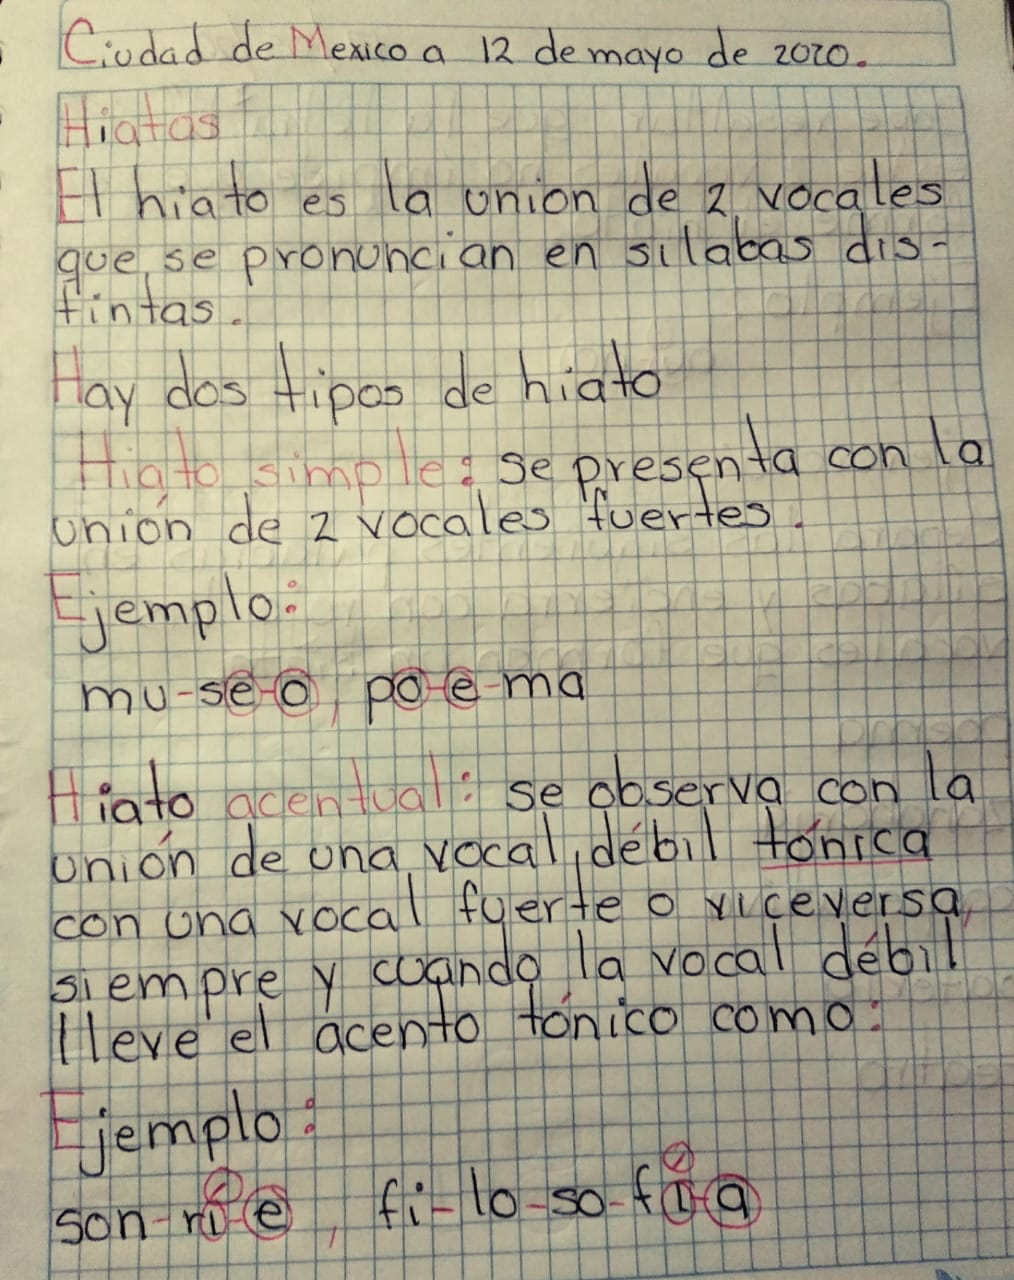 Ciudad de Mexico a 12 de mayo de 2020.
Hiatos
El hiato es la union de 2 vocales
que se pronuncian en silabas dis-
tintas.
Hay dos tipos de hiato
Hiato simple: se presenta con la
unión de 2 vocales fuertes.
Ejemplo:
mu-se-o, po-e-ma
Hiato acentual: se observa con la
unión de una vocal débil tónica
con una vocal fuerte o viceversa,
siempre y cuando la vocal débil
lleve el acento tónico como:
Ejemplo:
son-rí-e, fi-lo-so-fí-a